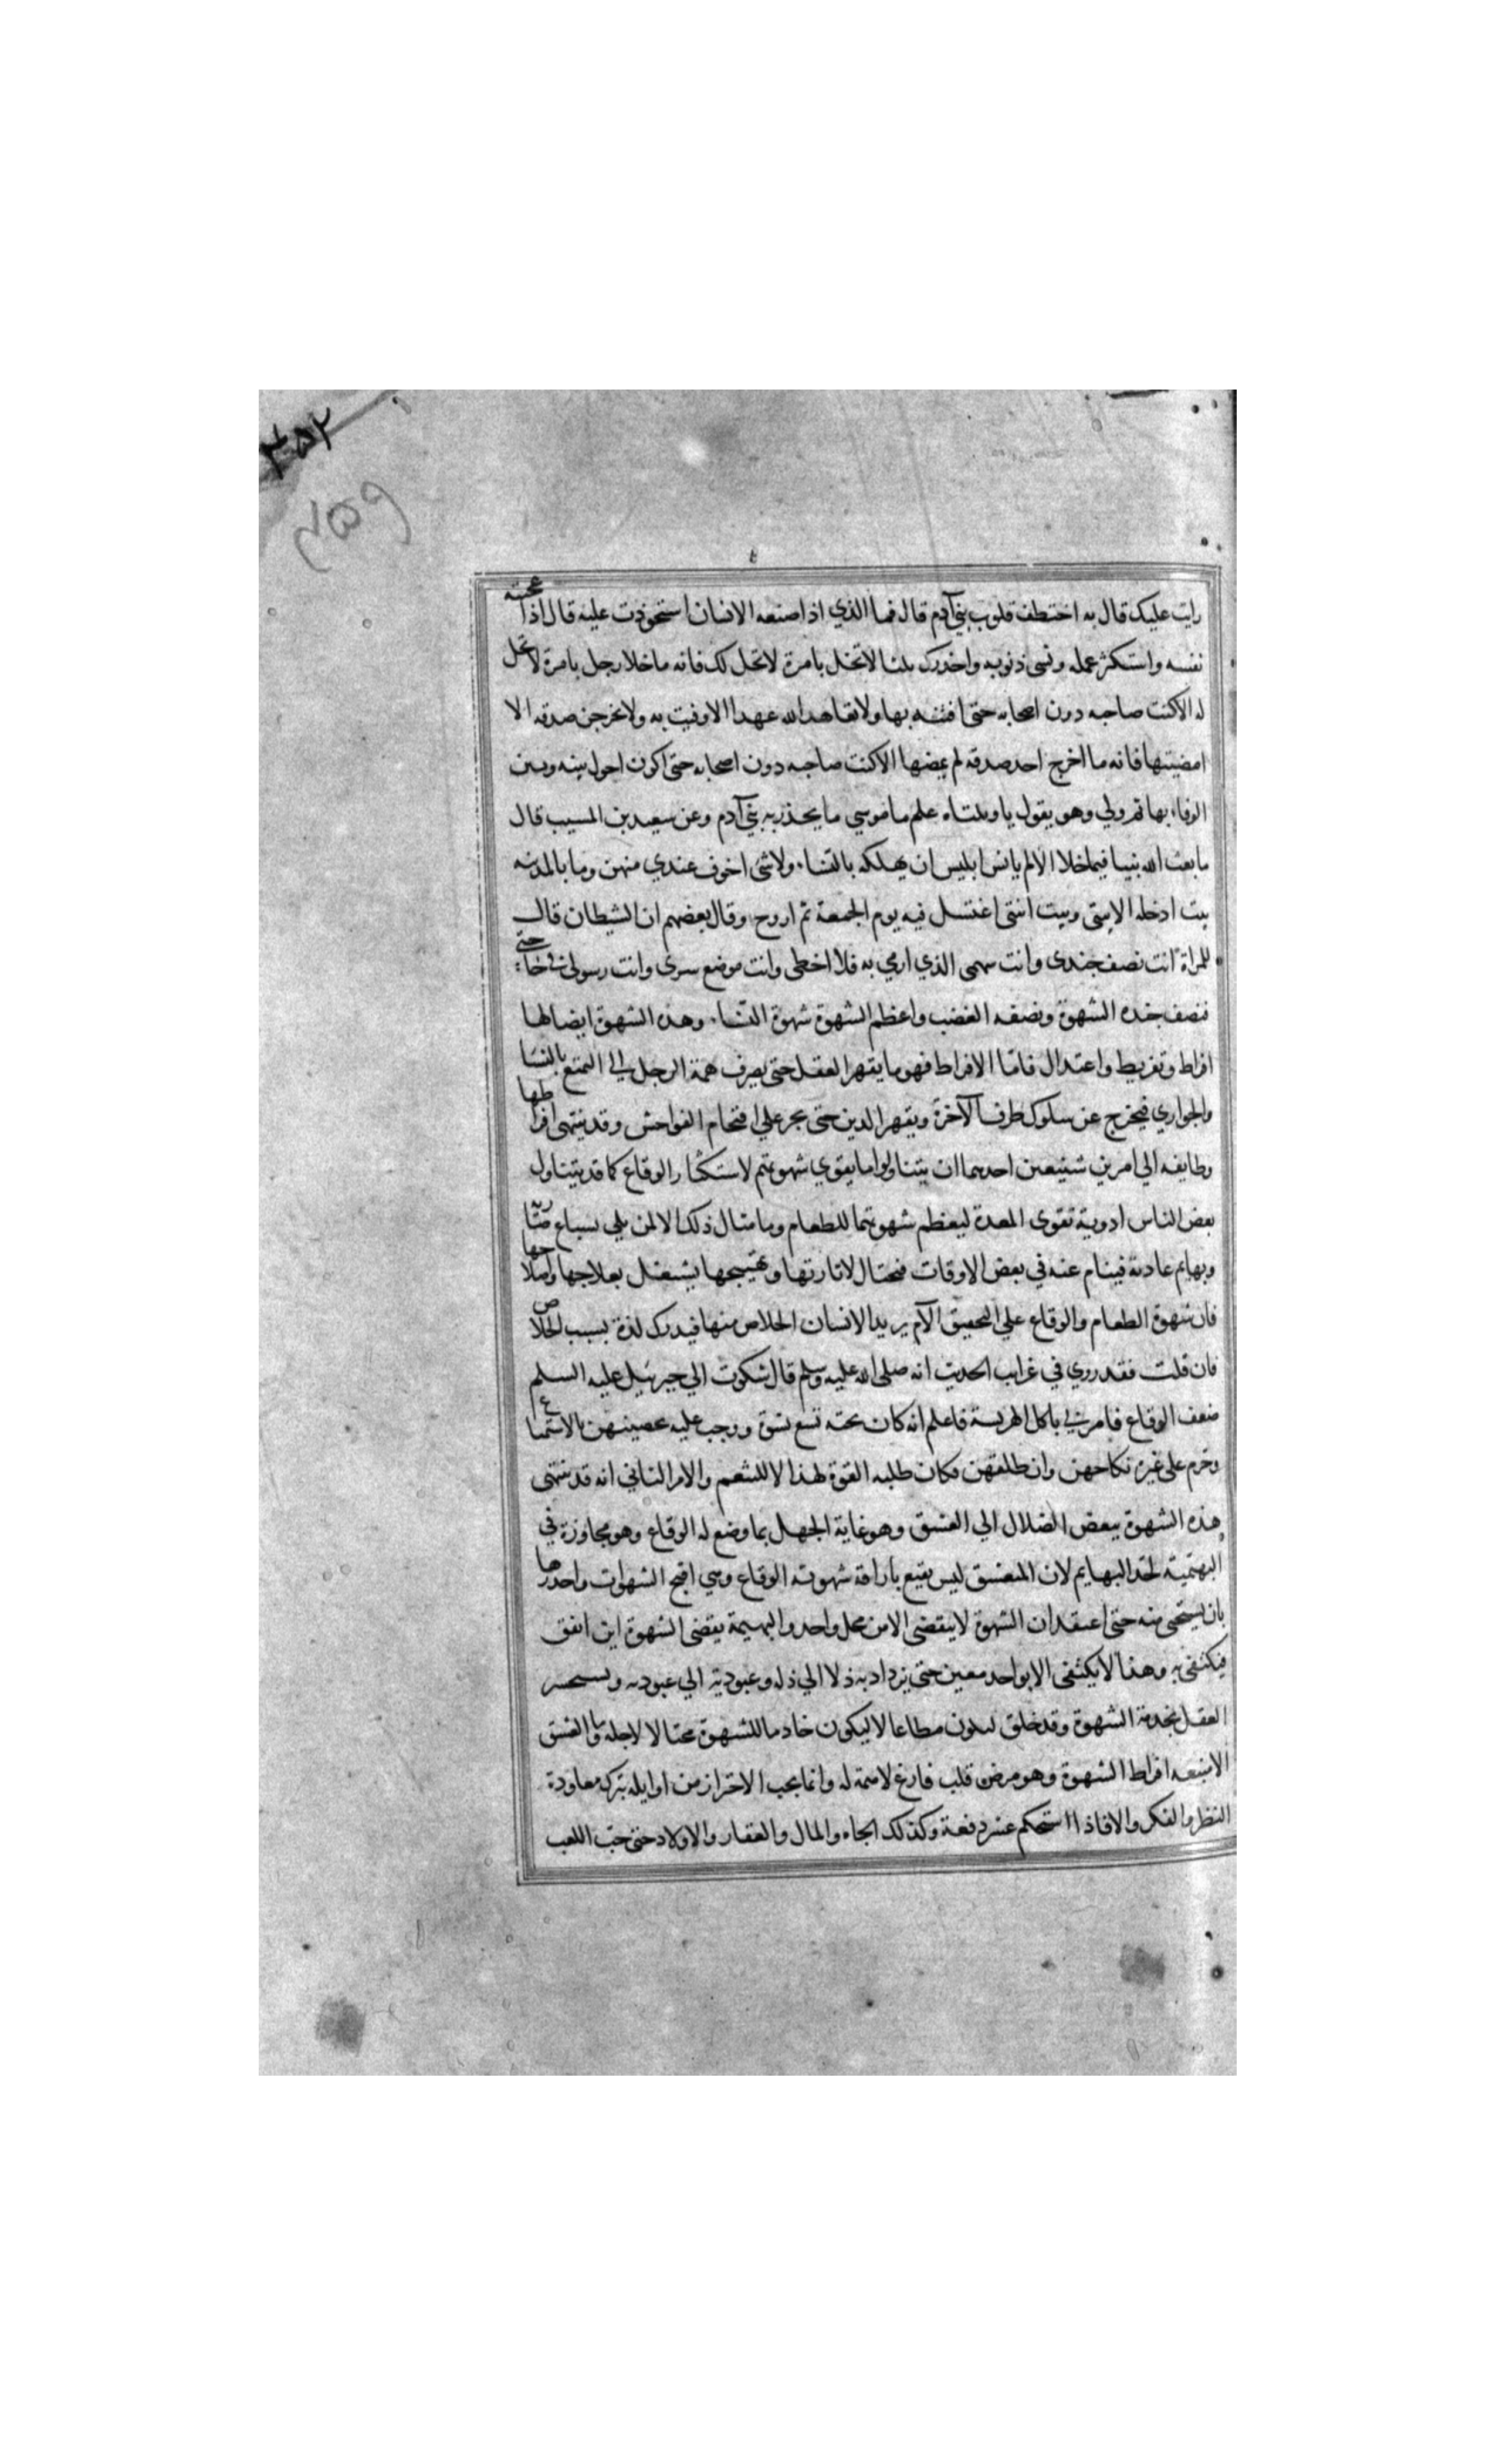 ۲۵۲
۲۵۹
رايت عليك قال به اختطف قلوب بني آدم قال فما الذي اذا صنعه الانسان استحوذت عليه قال اذا اعجبته
نفسه واستكثر عمله ونسي ذنوبه واحذرك بلثا لا تخل بامرة لا تحل لك فانه ما خلا رجل بامرة لا تحل
له الا كنت صاحبه دون اصحابه حتى افتنه بها ولا تعاهد الله عهدا الا وفيت به ولا تخرجن صدقه الا
امضيتها فانه ما اخرج احد صدقه لم يمضها الا كنت صاحبه دون اصحابه حتى اكون احول بينه وبين
الوفاء بها ثم ولي وهو يقول يا ويلتاه علم ما موسي ما يحذر به بني آدم وعن سعيد بن المسيب قال
ما بعث الله نبيا فيما خلا الا لم يائس ابليس ان يهلكه بالنساء ولا شئ اخوف عندي منهن وما بالمدينه
بيت ادخله الا بيتى وبيت ابنتى اغتسل فيه يوم الجمعة ثم اروح وقال بعضهم ان الشيطان قال
للمراة انت نصف جندى وانت سهمى الذي ارمي به فلا اخطى وانت موضع سرى وانت رسولى في حاجتى
فنصف جنده الشهوة ونصفه الغضب واعظم الشهوة شهوة النساء وهذه الشهوة ايضا لها
افراط وتفريط واعتدال فامّا الافراط فهو ما يقهر العقل حتى يصرف همة الرجل الي التمتع بالنسا
والجواري فيخرج عن سلوك طرف الآخرة ويقهر الدين حتى يجر علي اقتحام الفواحش وقد ينتهى افراطها
وطايفه الي امرين شنيعين احدهما ان يتناولوا ما يقوي شهوتهم لاستكثار الوقاع كما قد يتناول
بعض الناس ادوية تقوى المعدة ليعظم شهوتها للطعام وما مثال ذلك الا لمن بلي بسباع ضاريه
وبهايم عادية فينام عنه في بعض الاوقات فيحتال لاثارتها وتهييجها يشتغل بعلاجها واصلاحها
فان شهوة الطعام والوقاع علي التحقيق الآم يريد الانسان الخلاص منها فيدرك لذة بسبب الخلاص
فان قلت فقد روي في غرايب الحديث انه صلى الله عليه وسلم قال شكوت الي جبرئيل عليه السلم
ضعف الوقاع فامرني باكل الهريسة فاعلم انه كان تحته تسع نسوة ووجب عليه تحصينهن بالاستمتاع
وحرم على غيره نكاحهن وان طلقهن فكان طلبه القوة لهذا لا للتنعم والامر الثاني انه قد ينتهى
هذه الشهوة ببعض الضلال الي العشق وهو غاية الجهل بما وضع له الوقاع وهو مجاوزة في
البهيمية لحد البهايم لان المتعشق ليس يقنع باراقة شهوته الوقاع وهي اقبح الشهوات واجدرها
بان يستحى منه حتى اعتقد ان الشهوة لا ينقضى الا من محل واحد والبهيمة يقضى الشهوة اين اتفق
فيكتفى به وهذا لا يكتفى الا بواحد معين حتى يزداد به ذلا الي ذله وعبودية الي عبوديه ويستسخر
العقل بخدمة الشهوة وقد خلق ليكون مطاعا لا ليكون خادما للشهوة محتالا لاجله وما العشق
الا منبعه افراط الشهوة وهو مرض قلب فارغ لا همة له وانما يجب الاحتراز من اوايله بترك معاودة
النظر والفكر والا فاذا استحكم عسر دفعة وكذلك الجاه والمال والعقار والاولاد حتى حبّ اللعب